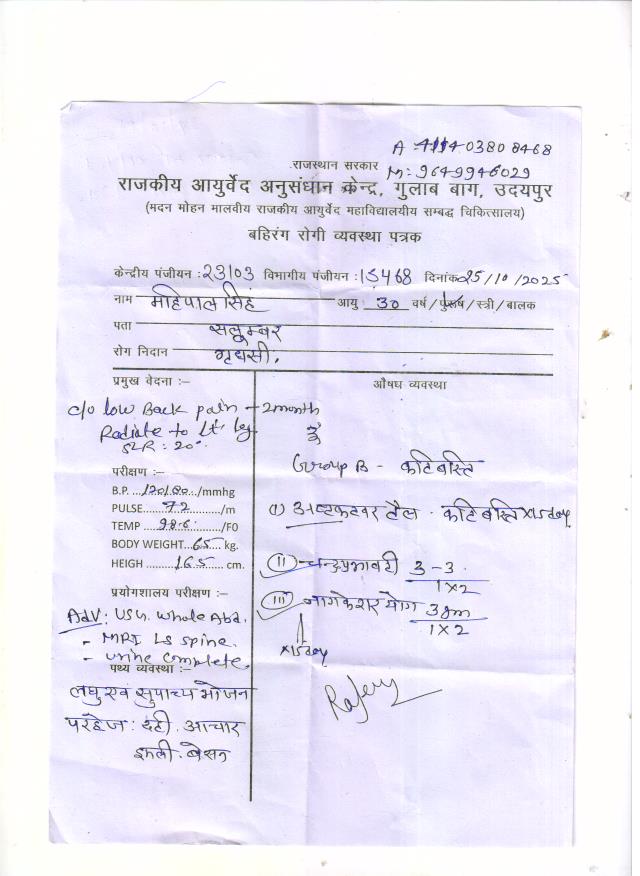 A 41140380 8468
राजस्थान सरकार M: 9649946029
राजकीय आयुर्वेद अनुसंधान केन्द्र, गुलाब बाग, उदयपुर
(मदन मोहन मालवीय राजकीय आयुर्वेद महाविद्यालयीय सम्बद्ध चिकित्सालय)
बहिरंग रोगी व्यवस्था पत्रक
केन्द्रीय पंजीयन : 23103 विभागीय पंजीयन : 15468 दिनांक 25/10/2025
नाम महिपाल सिंह आयु 30 वर्ष/पुरूष/स्त्री/बालक
पता सलूम्बर
रोग निदान गृध्रसी.
प्रमुख वेदना :–
औषध व्यवस्था
c/o low Back pain - 2 month
Radiate to Lt. leg
SLR : 20°
परीक्षण :–
B.P. ...120/80.../mmhg
PULSE...72.../m
TEMP ...98.6.../F0
BODY WEIGHT...65... kg.
HEIGH ...165... cm.
प्रयोगशालय परीक्षण :–
Adv: USG. Whole Abd.
- MRI LS spine.
- Urine complete
पथ्य व्यवस्था :–
लघु एवं सुपाच्य भोजन
परहेज : दही. आचार
इमली. बेसन
Rx
Group B - कटिबस्ति
(I) अष्टकटवर तैल - कटिबस्ति x15 day
(II) चन्द्रप्रभावटी 3-3
1x2
(III) नागकेशर योग 3gm
1x2
x15 day